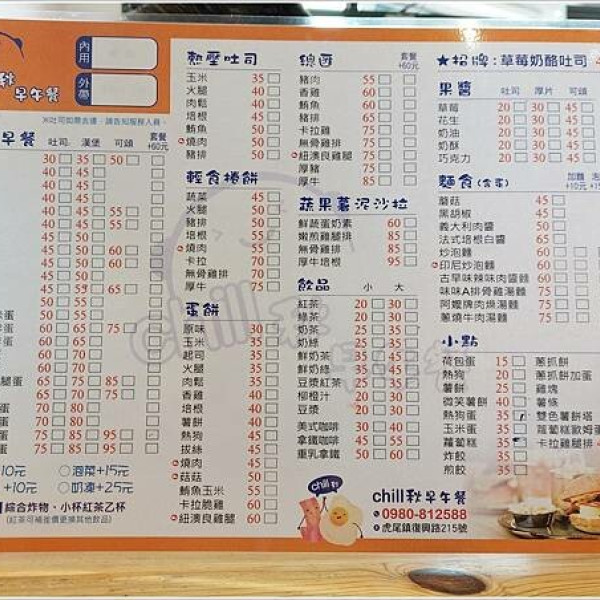 秋
早午餐
內用
外帶
※吐司如需去邊,請告知服務人員。
早餐 吐司 漢堡 可頌 套餐+60元
30 35 50
40 45
40 45
40 45
40 45 55
40 45 55
45 50 60
45 50 60
45 50
55 60 65
60 65 75
60 65
65 75 85
65 75 85
70 80
70 80
75 85 95
75 85 95
10元 ○泡菜+15元
+10元 ○乳凍+25元
綜合炸物、小杯紅茶乙杯
(紅茶可補差價更換其他飲品)
熱壓吐司
玉米 35
火腿 40
肉鬆 40
培根 45
鮪魚 50
燒肉 50
豬排 50
輕食捲餅
蔬菜 45
火腿 50
豬排 50
培根 55
燒肉 65
卡拉 70
無骨雞排 70
厚牛 75
蛋餅
原味 30
玉米 35
起司 35
火腿 35
肉鬆 35
香雞 40
培根 40
薯餅 40
熱狗 40
拔絲 40
燒肉 45
菇菇 50
鮪魚玉米 55
卡拉脆雞 60
紐澳良雞腿 60
總匯 套餐+60元
豬肉 55
香雞 60
鮪魚 60
培根 65
卡拉雞 75
無骨雞排 75
紐澳良雞腿 75
厚豬 75
厚牛 85
蔬果薯泥沙拉
鮮蔬蛋奶素 60
嫩煎雞腿排 85
無骨雞排 85
厚牛培根 95
飲品 小 大
紅茶 20 30
綠茶 20 30
奶茶 25 35
奶綠 25 35
鮮奶茶 35 45
鮮奶綠 35 45
豆漿紅茶 25 35
柳橙汁 20 30
豆漿 20 30
美式咖啡 35 45
拿鐵咖啡 45 55
重乳拿鐵 50 65
★招牌:草莓奶酪吐司
果醬 吐司 厚片 可頌
草莓 20 30 45
花生 20 30 45
奶油 20 30 45
奶酥 20 30 45
巧克力 20 30 45
麵食(含蛋) 加麵+10元
蘑菇 45
黑胡椒 45
義大利肉醬 50
法式培根白醬 65
炒泡麵 60
印尼炒泡麵 60
古早味辣味肉醬麵 60
味味A排骨雞湯麵 75
阿嬤牌肉燥湯麵 75
蔥燒牛肉湯麵 75
小點
荷包蛋 15 蔥抓餅
熱狗 20 蔥抓餅加蛋
薯餅 25 雞塊
微笑薯餅 40 薯條
熱狗蛋 35 雙色薯餅塔
玉米蛋 35 蘿蔔糕歐姆蛋
蘿蔔糕 35 卡拉雞腿排
炸餃 35
煎餃 35
chill秋早午餐
0980-812588
虎尾鎮復興路215號